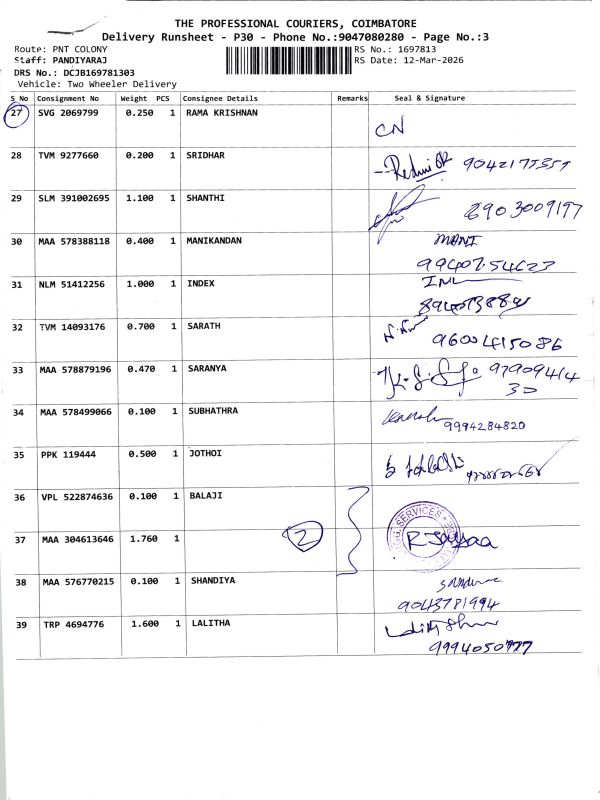 THE PROFESSIONAL COURIERS, COIMBATORE
Delivery Runsheet - P30 - Phone No.:9047080280 - Page No.:3
Route: PNT COLONY RS No.: 1697813
Staff: PANDIYARAJ RS Date: 12-Mar-2026
DRS No.: DCJB169781303
Vehicle: Two Wheeler Delivery
S No Consignment No Weight PCS Consignee Details Remarks Seal & Signature
27 SVG 2069799 0.250 1 RAMA KRISHNAN
CN
28 TVM 9277660 0.200 1 SRIDHAR
29 SLM 391002695 1.100 1 SHANTHI
8903009197
30 MAA 578388118 0.400 1 MANIKANDAN MANI
31 NLM 51412256 1.000 1 INDEX
32 TVM 14093176 0.700 1 SARATH
9600415086
33 MAA 578879196 0.470 1 SARANYA
97909414
30
34 MAA 578499066 0.100 1 SUBHATHRA
9994284820
35 PPK 119444 0.500 1 JOTHOI
36 VPL 522874636 0.100 1 BALAJI
SERVICES
37 MAA 304613646 1.760 1 2
38 MAA 576770215 0.100 1 SHANDIYA
9043781994
39 TRP 4694776 1.600 1 LALITHA
9994050777